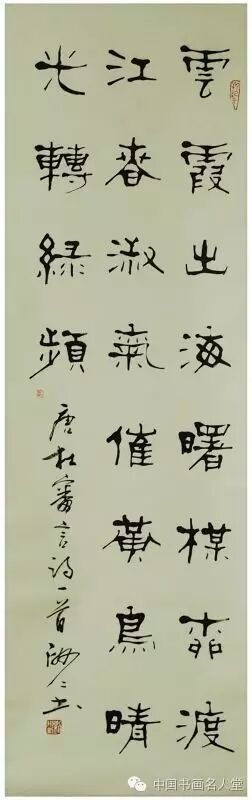 雲霞出海曙楳柳渡
江春淑氣催黃鳥晴
光轉緑頻
唐杜審言詩一首
中国书画名人堂